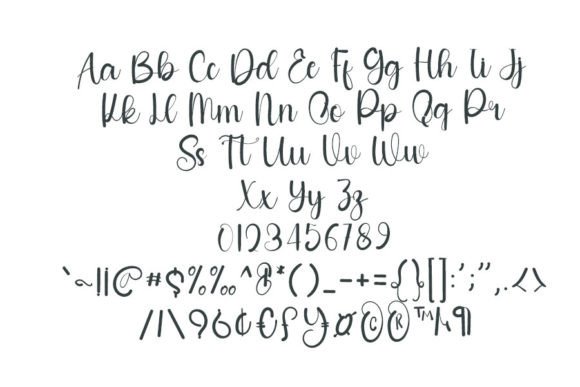 Aa Bb Cc Dd Ee Ff Gg Hh Ii Jj
Kk Ll Mm Nn Oo Pp Qq Rr
Ss Tt Uu Vv Ww
Xx Yy Zz
0123456789
`~!¡@#$%‰^&*()_-+={}[]:';",.<>
/|\?¿¢€£¥¤©®™µ¶